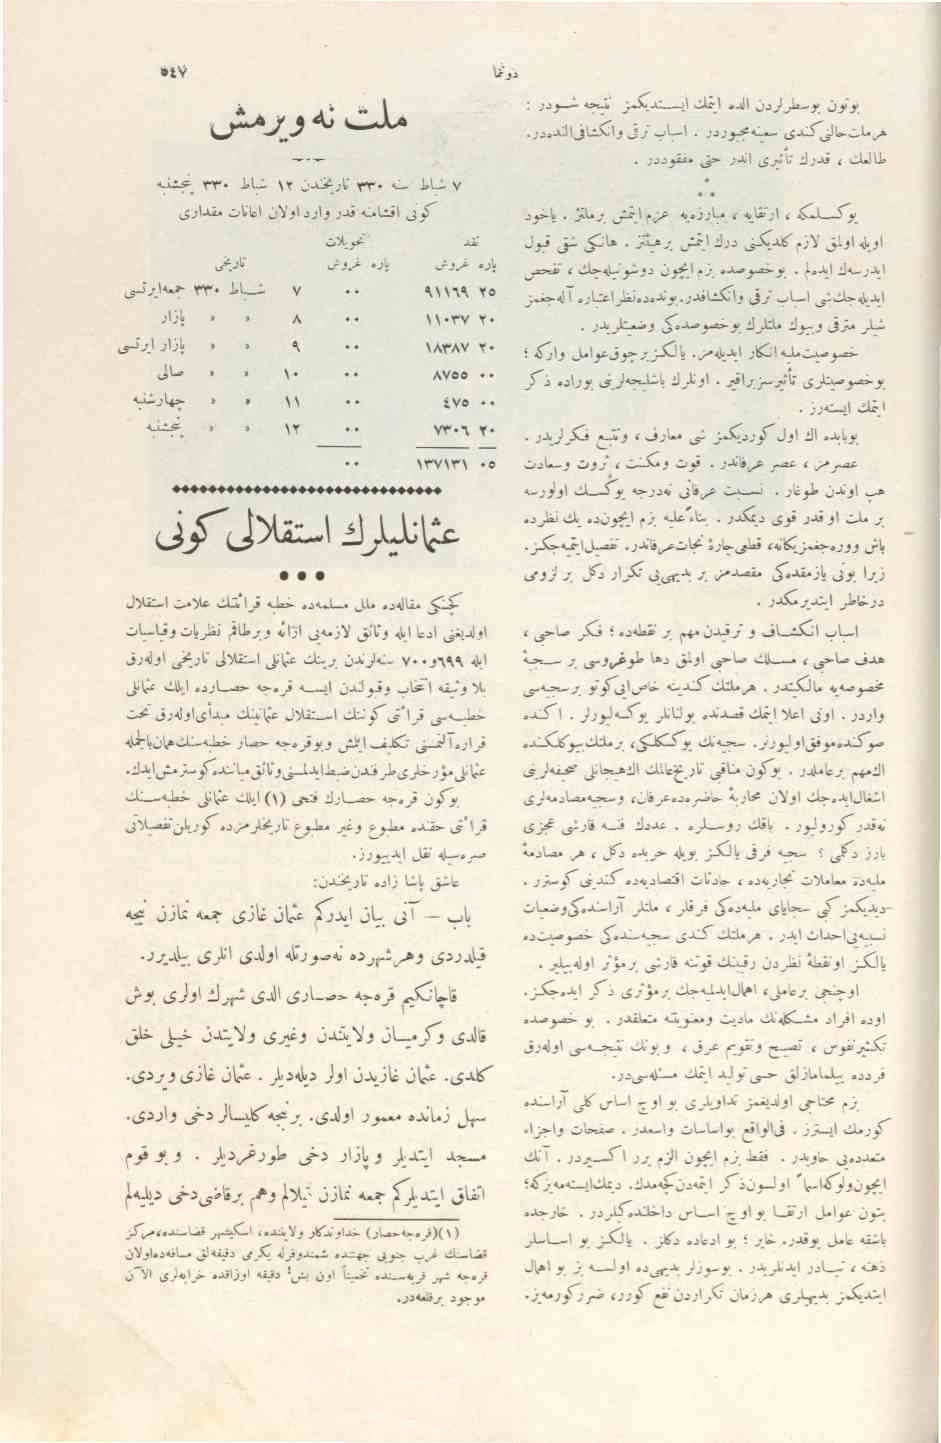 دونما
٥٤٧
بوتون بوسطرلردن الده ایتمك ایسـتدیكمز نتیجه شـودر :
هرملت حالنی كندی سعینه مجبوردر . اسباب ترقی وانكشافی النده در.
طالعك ، قدرك تأثیری اندر حتی مفقوددر .
* * *
یوكسـلمكه ، ارتقایه ، مبارزه یه عزم ایتمش برملتز . یاخود
اویله اولمق لازم كلدیكنی درك ایتمش برهیئتز . هانكی شقی قبول
ایدرسه ك ایده لم . بوخصوصده بزم ایچون دوشونیله جك ، تفحص
ایدیله جك شی اسباب ترقی وانكشافدر. بونده ده نظر اعتباره آله جغمز
شیلر مترقی وبیوك ملتلرك بوخصوصده كی وضعیتلریدر .
خصوصیت ملیه انكار ایدیله مز. یالكز برچوق عوامل واركه ؛
بوخصوصیتلری تأثیرسز براقیر . اونلرك باشلیجه لرینی بوراده ذكر
ایتمك ایسته رز .
بوبابده اك اول كوردیكمز شی معارف ، وتتبع فكرلریدر .
عصرمز ، عصر عرفاندر . قوت ومكنت ، ثروت وسعادت
هب اوندن طوغار . نسـبت عرفانی نه درجه یوكسـك اولورسه
بر ملت او قدر قوی دیمكدر . بناءً علیه بزم ایچون ده یك نظرده
باش ووره جغمز یكانه ، قطعی چارۀ نجات عرفاندر. تفصیل ایتمیه جكز.
زیرا بونی یازمقده كی مقصدمز بر بدیهی یی تكرار دكل بر لزومی
درخاطر ایتدیرمكدر .
اسباب انكشـاف و ترقیدن مهم بر نقطه ده ؛ فكر صاحبی ،
هدف صاحبی ، مسـلك صاحبی اولمق دها طوغروسی بر سـجیۀ
مخصوصه یه مالكیتدر . هرملتك كندینه خاص ایی كوتو برسجیه سی
واردر . اونی اعلا ایتمك قصدنده بولنانلر یوكسه لیورلر . اكنده
صوكنده موفق اولیورلر. سجیه نك یوكسكلكی، برملتك بیوكلكنده
اك مهم برعاملدر . بوكون مناقبی تاریخ عالمك اك هیجانلی صحیفه لرینی
اشغال ایده جك اولان محاربۀ حاضره ده عرفان، وسجیه مصادمه لری
نه قدر كورولیور . باقك روسـلره . عددك فنـه قارشی عجزی
بارز دكلمی ؟ سجیه فرقی یالكز بویله حربده دكل ، هر مصادمۀ
ملیه ده معاملات تجاریه ده ، حادثات اقتصادیه ده كندینی كوسترر .
دیدیكمز كبی سجایای ملیه ده كی فرقلر ، ملتلر آراسنده كی وضعیات
نسبیه یی احداث ایدر . هرملتك كندی سجیه سنده كی خصوصیت ده
یالكز اونقطۀ نظردن رقیبنك قوتنه قارشی برمؤثر اوله بیلیر .
اوچنجی برعاملی، اهمال ایدلمیه جك برمؤثری ذكر ایده جكز.
اوده افراد مشـكله نك مادیت ومعنویتنه متعلقدر . بو خصوصده
تكثیر نفوس ، تصحیح وتقویم عرق ، وبونك نتیجه سی اوله رق
فردده بیلمامازلق حسی تولید ایتمك مسئله سی در.
بزم محتاجی اولدیغمز تداویلری بو اوچ اساس كلی آراسنده
كورمك ایسترز . فی الواقع بواساسات واسعدر . صفحات واجزاء
متعدده یی حاویدر . فقط بزم ایچون الزم برر اكسـیردر . آنك
ایچون ولوكه اسماً اولسون ذكر ایتمه دن كچه مدك. دیمك ایسته مه یزكه؛
بتون عوامل ارتقـا بو اوچ اسـاس داخلنده كیلردر . خارجده
باشقه عامل یوقدر. خایر ؛ بو ادعاده دكلز . یالكز بو اسـاسلر
ذهنه ، تبـادر ایدنلریدر . بوسوزلر بدیهی ده اولسـه بز بو اهمال
ایتدیكمز بدیهیلری هرزمان تكراردن نفع كورر، ضرر كورمه یز.
ملت نه ویرمش
٧ شباط سنه ٣٣٠ تاریخندن ١٢ شباط ٣٣٠ پنجشنبه
كونی اقشامنه قدر وارد اولان اعانات مقداری
نقد تحویلات
پاره غروش پاره غروش تاریخی
٢٥ ٩١١٦٩ ٠٠ ٧ شـباط ٣٣٠ جمعه ایرتسی
٢٠ ١١٠٣٧ ٠٠ ٨ » » پازار
٢٠ ١٨٣٨٧ ٠٠ ٩ » » پازار ایرتسی
٠٠ ٨٧٥٥ ٠٠ ١٠ » » صالی
٠٠ ٤٧٥ ٠٠ ١١ » » چهارشنبه
٢٠ ٧٣٠٦ ٠٠ ١٢ » » پنجشنبه
٠٥ ١٣٧١٣١ ٠٠
عثمانلیلرك استقلالی كونی
كچنكی مقاله ده ملل مسلمه ده خطبه قرائتنك علامت استقلال
اولدیغنی ادعا ایله وثائق لازمه یی ارائه وبرطاقم نظریات وقیاسیات
ایله ٦٩٩و٧٠٠ سنه لرندن برینك عثمانلی استقلالی تاریخی اوله رق
بلا وثیقه انتخاب وقبولندن ایسـه قره جه حصـارده ایلك عثمانلی
خطبه سی قرائتی كوننك اسـتقلال عثمانینك مبدأی اوله رق تحت
قراره آلنمسنی تكلیف ایلمش وبوقره جه حصار خطبه سنك همان بالجمله
عثمانلی مؤرخلری طرفندن ضبط ایدلمسنی وثائق میاننده كوسترمش ایدك.
بوكون قره جه حصـارك فتحی (١) ایلك عثمانلی خطبه سـنك
قرائتی حقنده مطبوع وغیر مطبوع تاریخلرمزده كوریلن تفصیلاتی
صره سیله نقل ایدییورز.
عاشق پاشا زاده تاریخندن:
باب – آنی بیان ایدركم عثمان غازی جمعه نمازن نیجه
قیلدردی وهرشهرده نه صورتله اولدی انلری بیلدیرر.
قاچانكیم قره جه حصـاری الدی شهرك اولری بوش
قالدی وكرمیـان ولایتندن وغیری ولایتدن خیـلی خلق
كلدی. عثمان غازیدن اولر دیله دیلر . عثمان غازی ویردی.
سهل زمانده معمور اولدی. برنیجه كلیسالر دخی واردی.
مسجد ایتدیلر وپازار دخی طورغردیلر . وبو قوم
اتفاق ایتدیلركم جمعه نمازن قیلالم وهم برقاضی دخی دیلیه لم
(١)(قره جه حصار) خداوندكار ولایتنده ، اسكیشهر قضاسنده ، مركز
قضاسنك غرب جنوبی جهتنده شمندوفرله یكرمی دقیقه لق مسافه ده اولان
قره جه شهر قریه سـنده تخمیناً اون بش دقیقه اوزاقده خرابه لری الآن
موجود برقلعه در.